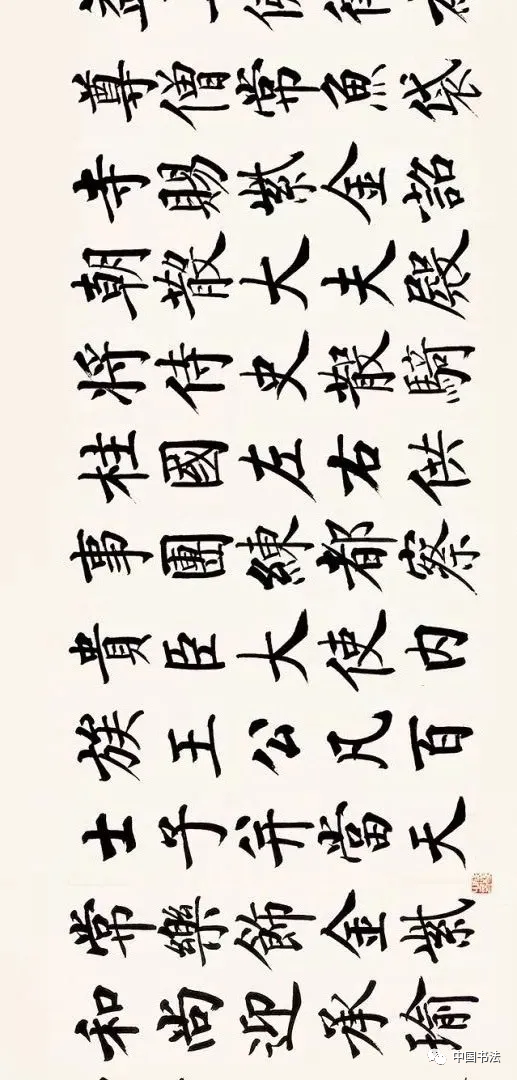 尊僧常魚袋
寺賜紫金詔
朝散大夫殿
將侍史散騎
柱國左右供
事團練都察
貴臣大使內
族王公凡百
士子并當天
常樂飾金紫
和尚迎承瑜
中国书法